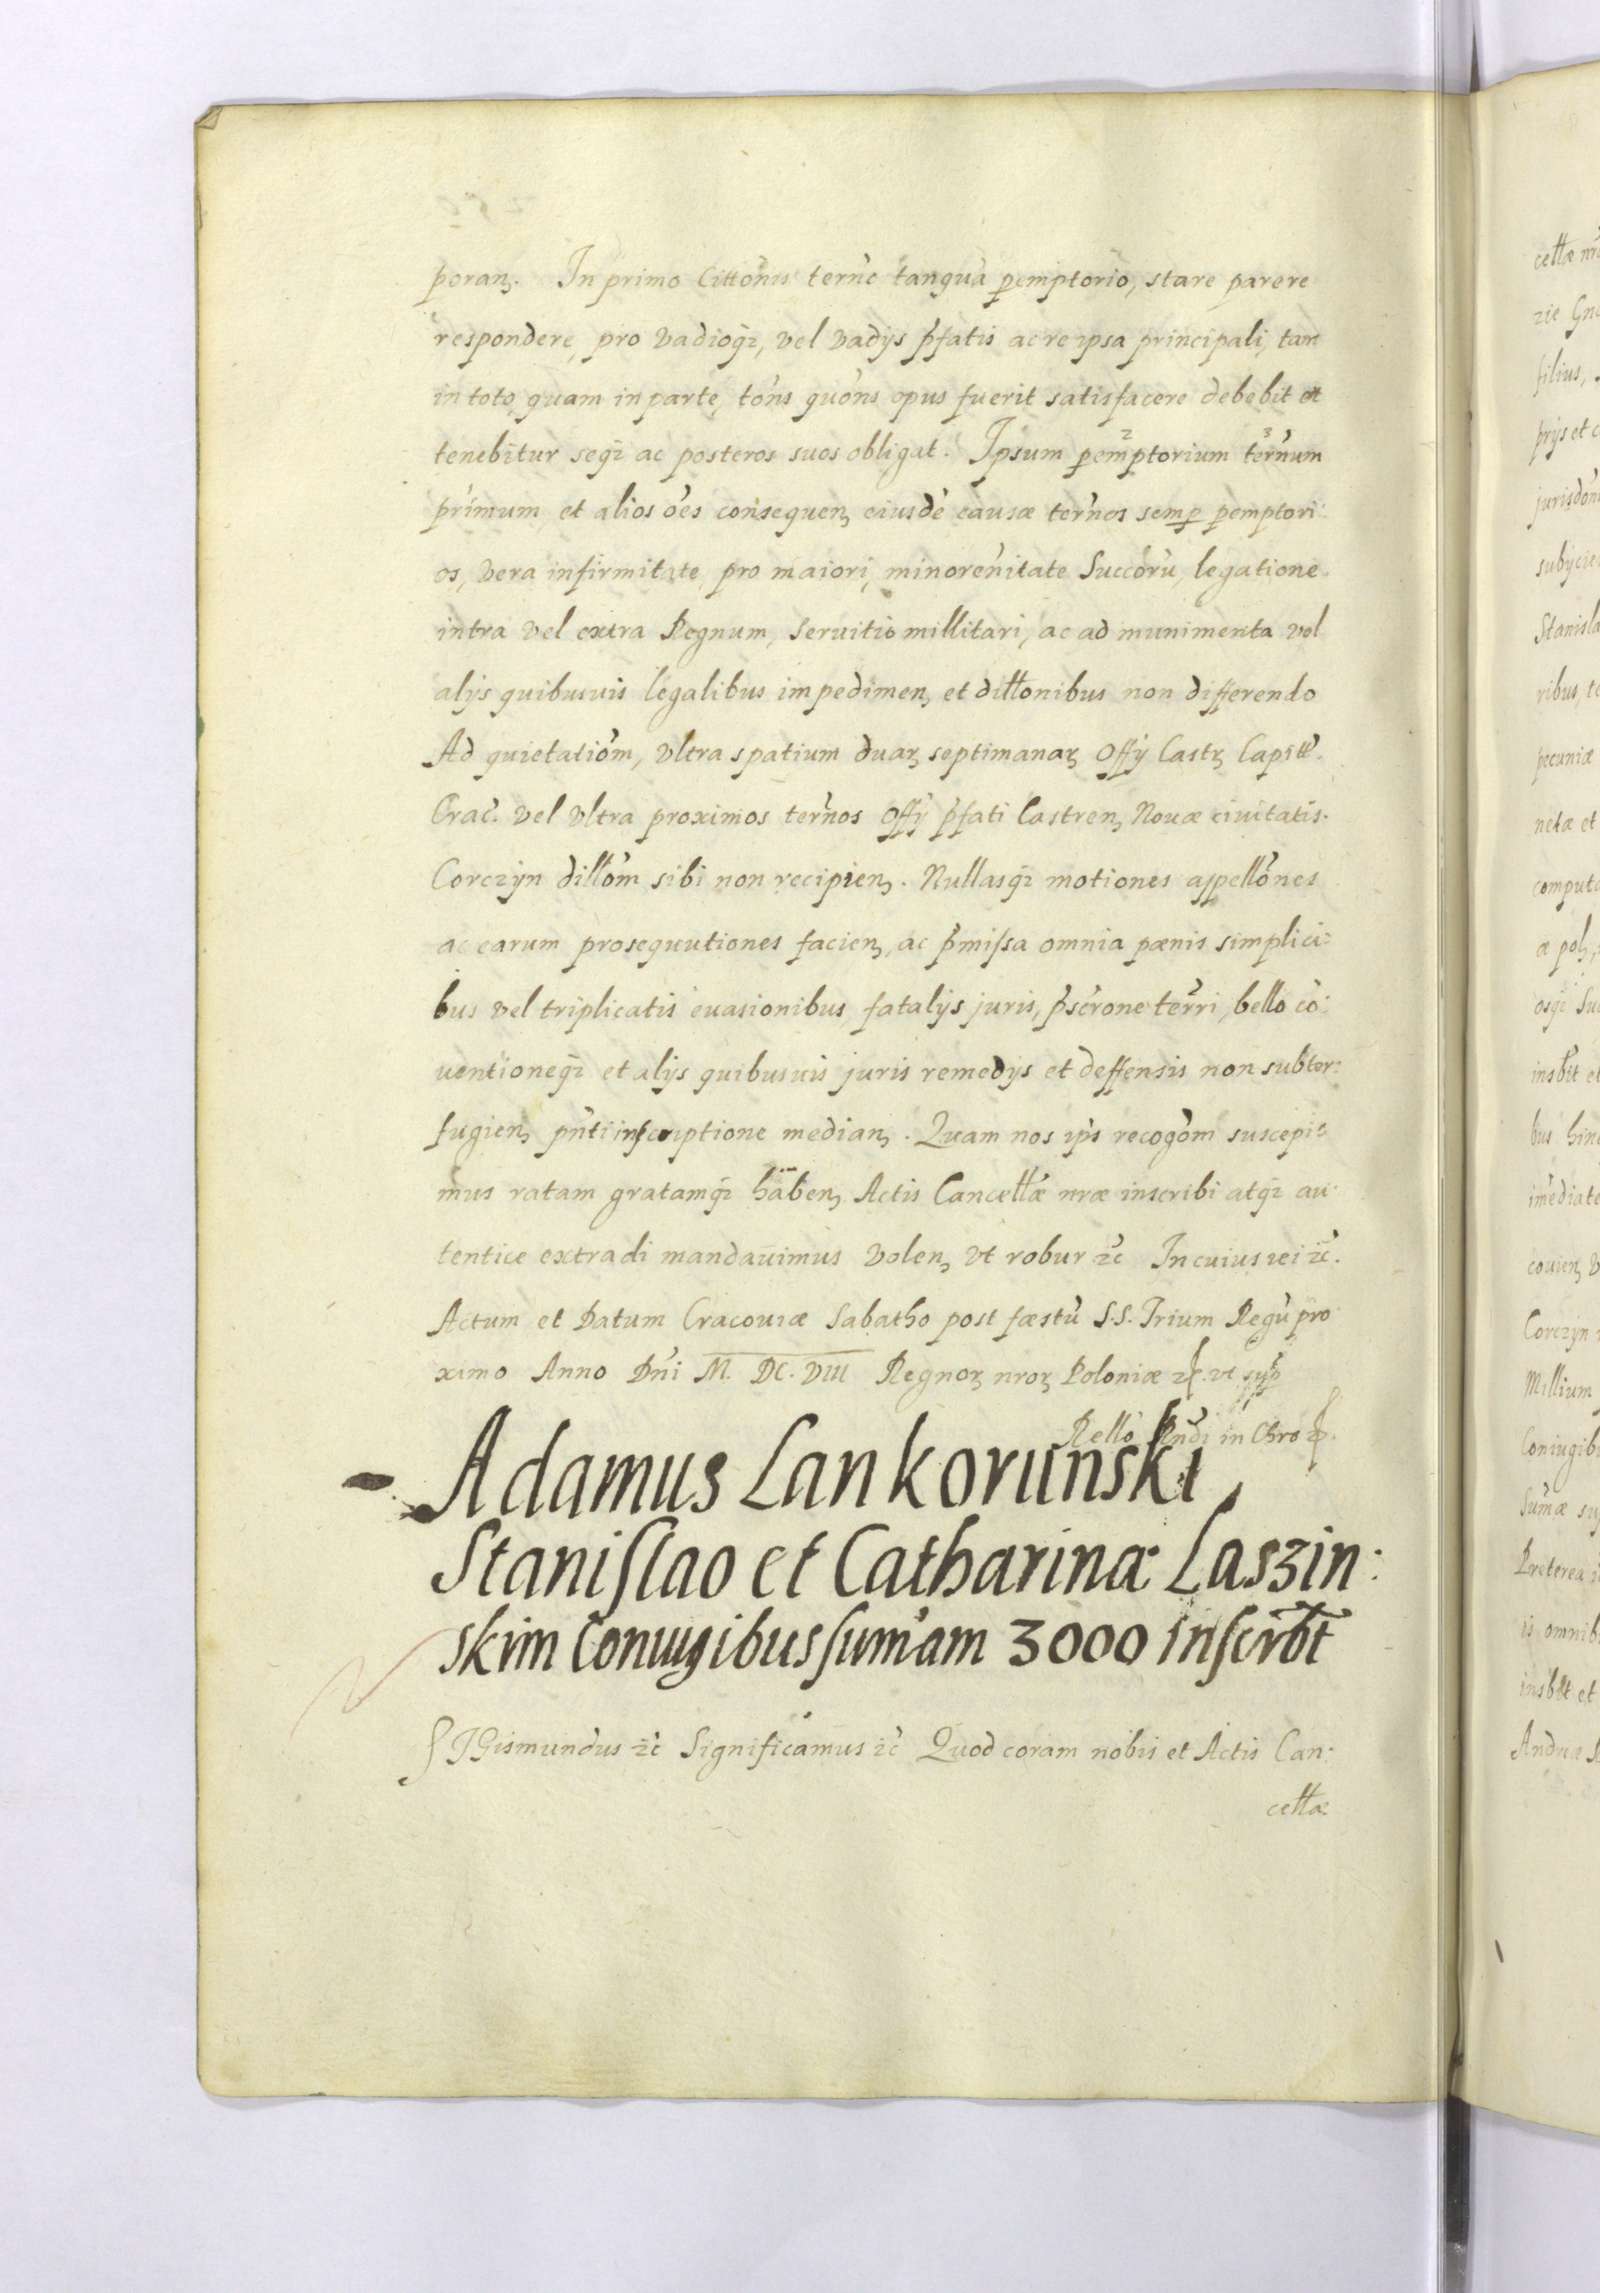 poran. In primo Citton̄is terno tanquā peremptorio, stare parere
respondere, pro vadioq₃, vel vadijs p̄fatis ac re ipsa principali, tam
in toto, quam in parte, tōns quōns opus fuerit satisfacere debebit et
tenebitur seq₃ ac posteros suos obligat. Ipsum pemptorium ternum
primum et alios oēs consequen₃ eiusdē causæ ternos semp pemptori:
os, vera infirmitate, pro maiori, minorenitate Succorū, legatione
intra vel extra Regnum, Seruitio millitari, ac ad munimenta vel
alijs quibusuis legalibus impedimen₃ et dillonibus non differendo
Ad quietatiōm, vltra spatium duar₃ septimanar₃ Offij Castr₃ Capitt.
Crac. vel vltra proximos ternos Offij p̄fati Castren₃ Nouæ ciuitatis
Corczyn dillōm sibi non recipien₃. Nullasq₃ motiones appellōnes
ac earum prosequutiones facien₃, ac p̄missa omnia pænis simplici:
bus vel triplicatis euasionibus, fatalijs juris, p̄scrone terri, bello cō:
uentioneq₃ et alijs quibusuis juris remedijs et deffensis non subter:
fugien₃ pñti inscriptione median₃. Quam nos ips recogōm suscepi:
mus ratam gratamq₃ haben₃ Actis Cancellæ nræ inscribi atq₃ au:
tentice extradi mandauimus volen₃ vt robur zc̄ In cuius rei zc̄.
Actum et Datum Cracouiæ Sabatho post fæstū S.S. Trium Regū pro
ximo Anno Dñi M. DC. VIII Regnor₃ nror₃ Poloniæ zc̄. vt sup
Rello Rndi in Chro p.
Adamus Lankorunski
Stanislao et Catharinæ Laszin:
skim Coniugibus sum̄am 3000 inscribt
SJGismundus zc̄ Significamus zc̄ Quod coram nobis et Actis Can:
cellæ
cellæ
zie
filius,
prijs et c
Stanisla
ribus, te
pecuniæ
netæ et
computa
bus hinc
Corczyn
Millium
Coniugib
Preterea
is omnib
insbit et
Andreæ